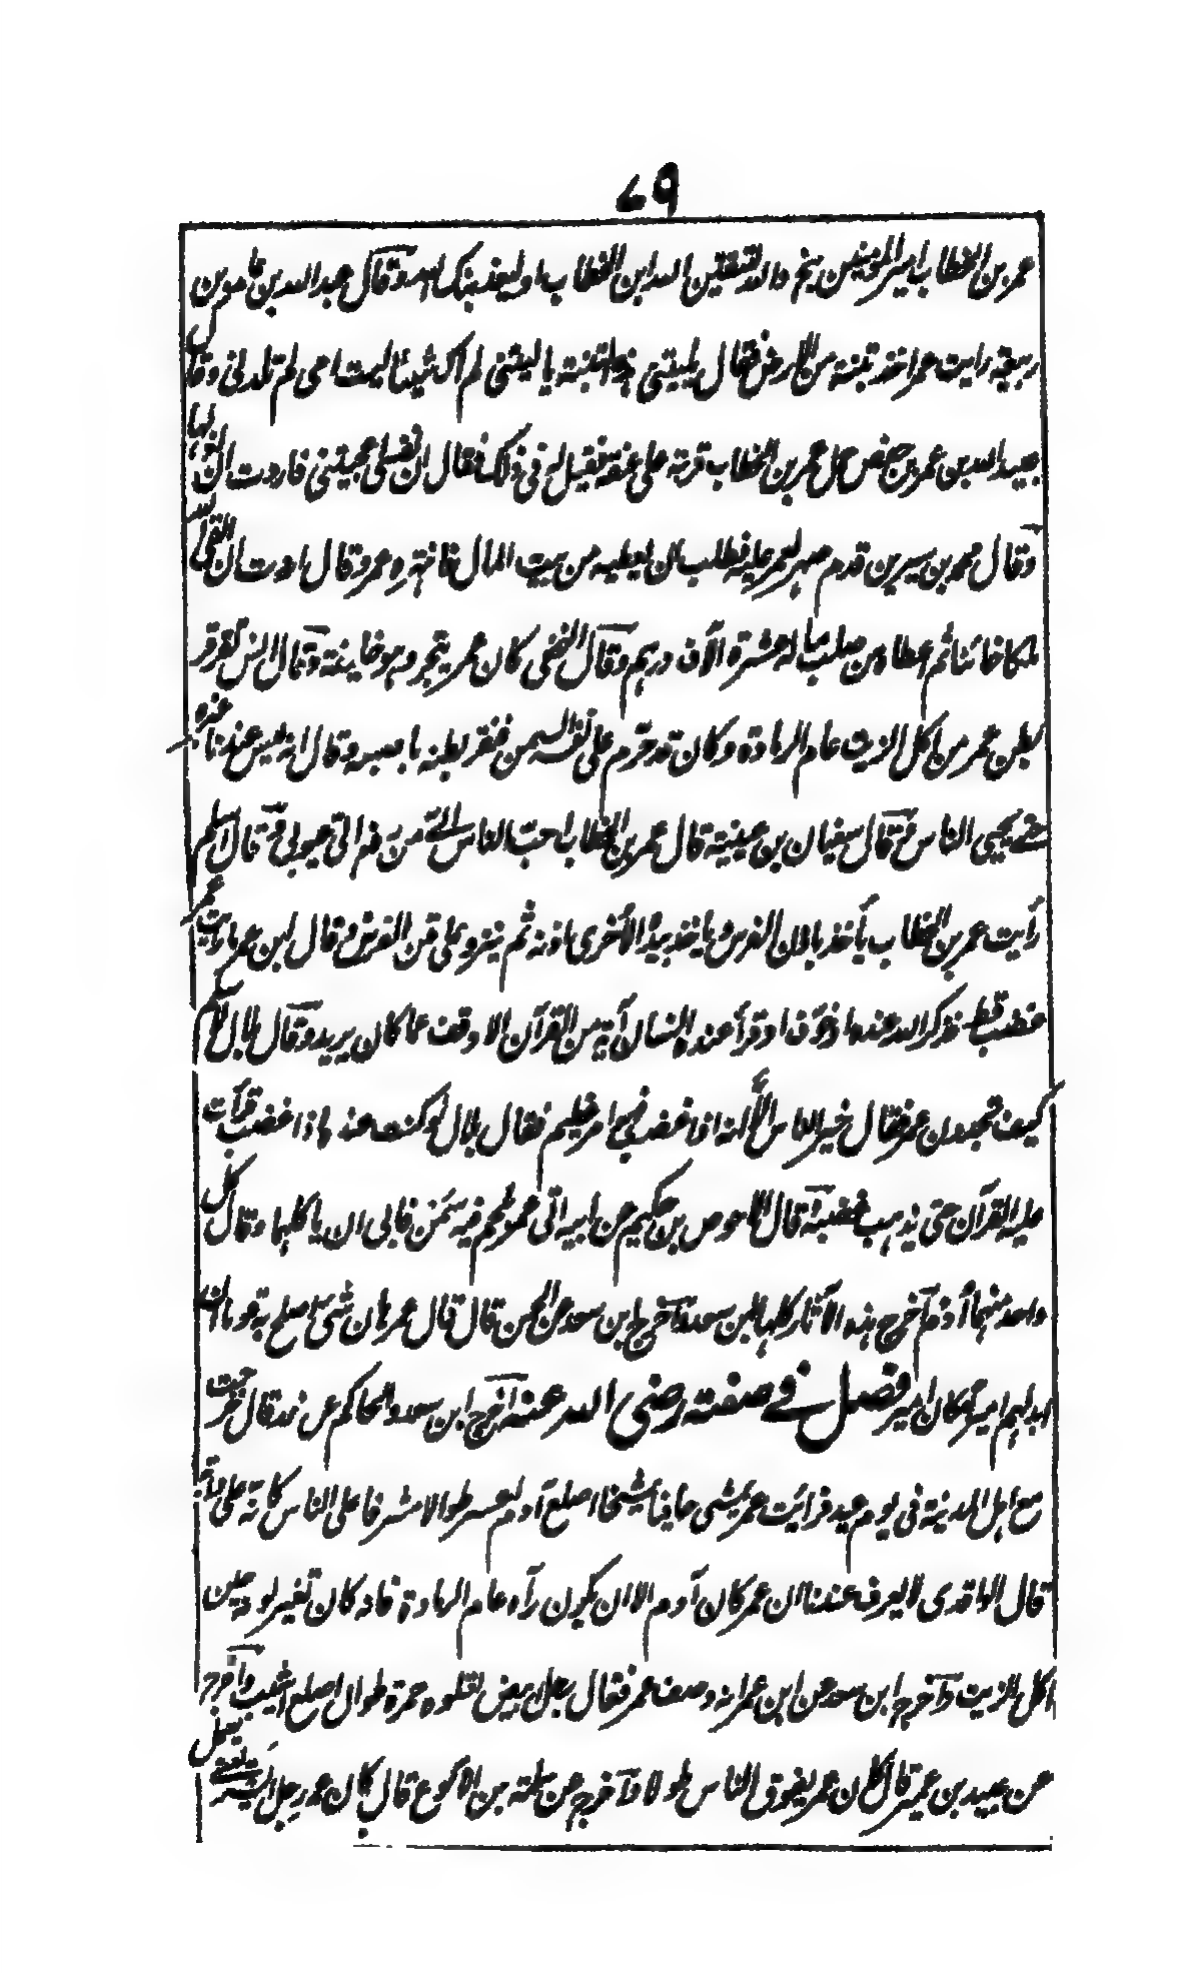 ٧٩
عمر بن الخطاب امير المؤمنين بخ والله لتتقين الله ابن الخطاب او ليعذبنك الله وقال عبد الله بن عامر بن
ربيعة رايت عمر اخذ تبنة من الارض فقال يليتنى هذه التبنة ياليتنى لم اك شيئا ليت امى لم تلدنى وقال
عبيد الله بن عمر بن حفص حمل عمر بن الخطاب قربة على عنقه فقيل له فى ذلك فقال ان نفسى اعجبتنى فاردت ان اذلها
وقال محمد بن سيرين قدم صهر لعمر عليه فطلب ان يعطيه من بيت المال فانتهره عمر وقال اردت ان القى الله
ملكا خائنا ثم اعطاه من صلب ماله عشرة الآف درهم وقال النخعى كان عمر يتجر وهو خليفة وقال انس تقرقر
بطن عمر من اكل الزيت عام الرمادة وكان قد حرّم على نفسه السمن فنقر بطنه باصبعه وقال انه ليس عندنا غيره
حتے يحيى الناس وقال سفيان بن عيينة قال عمر بن الخطاب احبّ الناس الےّ من رفع الىّ عيوبى وقال اسلم
رأيت عمر بن الخطاب يأخذ باذن الفرس وياخذ بيده الاخرى اذنه ثم ينزو على متن الفرس وقال ابن عمر ما رايت عمر
غضب قط فذكر الله عنده او خوّف او قرأ عنده انسان آية من القرآن الا وقف عما كان يريد وقال بلال لاسلم
كيف تجدون عمر فقال خير الناس الّا انه اذا غضب فهو امر عظيم فقال بلال لو كنت عنده اذا غضب قرأت
عليه القرآن حتى يذهب غضبه وقال الاحوص بن حكيم عن ابيه اتى عمر بلحم فيه سمن فابى ان ياكلهما وقال كل
واحد منهما أدم اخرج هذه الآثار كلها ابن سعد واخرج ابن سعد عن الحسن قال قال عمر هان شئ اصلح به قوما ان
ابدلهم اميرا مكان امير فصل فے صفته رضى الله عنه اخرج ابن سعد والحاكم عن زر قال خرجت
مع اهل المدينة فى يوم عيد فرأيت عمر يمشى حافيا شيخا اصلع آدم اعسر طوالا مشرفا على الناس كانه على دابة
قال الواقدى لا يعرف عندنا ان عمر كان آدم الا ان يكون رآه عام الرمادة فانه كان تغير لونه حين
اكل الزيت واخرج ابن سعد عن ابن عمر انه وصف عمر فقال رجل ابيض تعلوه حمرة طوال اصلع اشيب واخرج
عن عبيد بن عمير قال كان عمر يفوق الناس طولا واخرج عن سلمة بن الاكوع قال كان عمر رجل ايسر يعنى يعمل